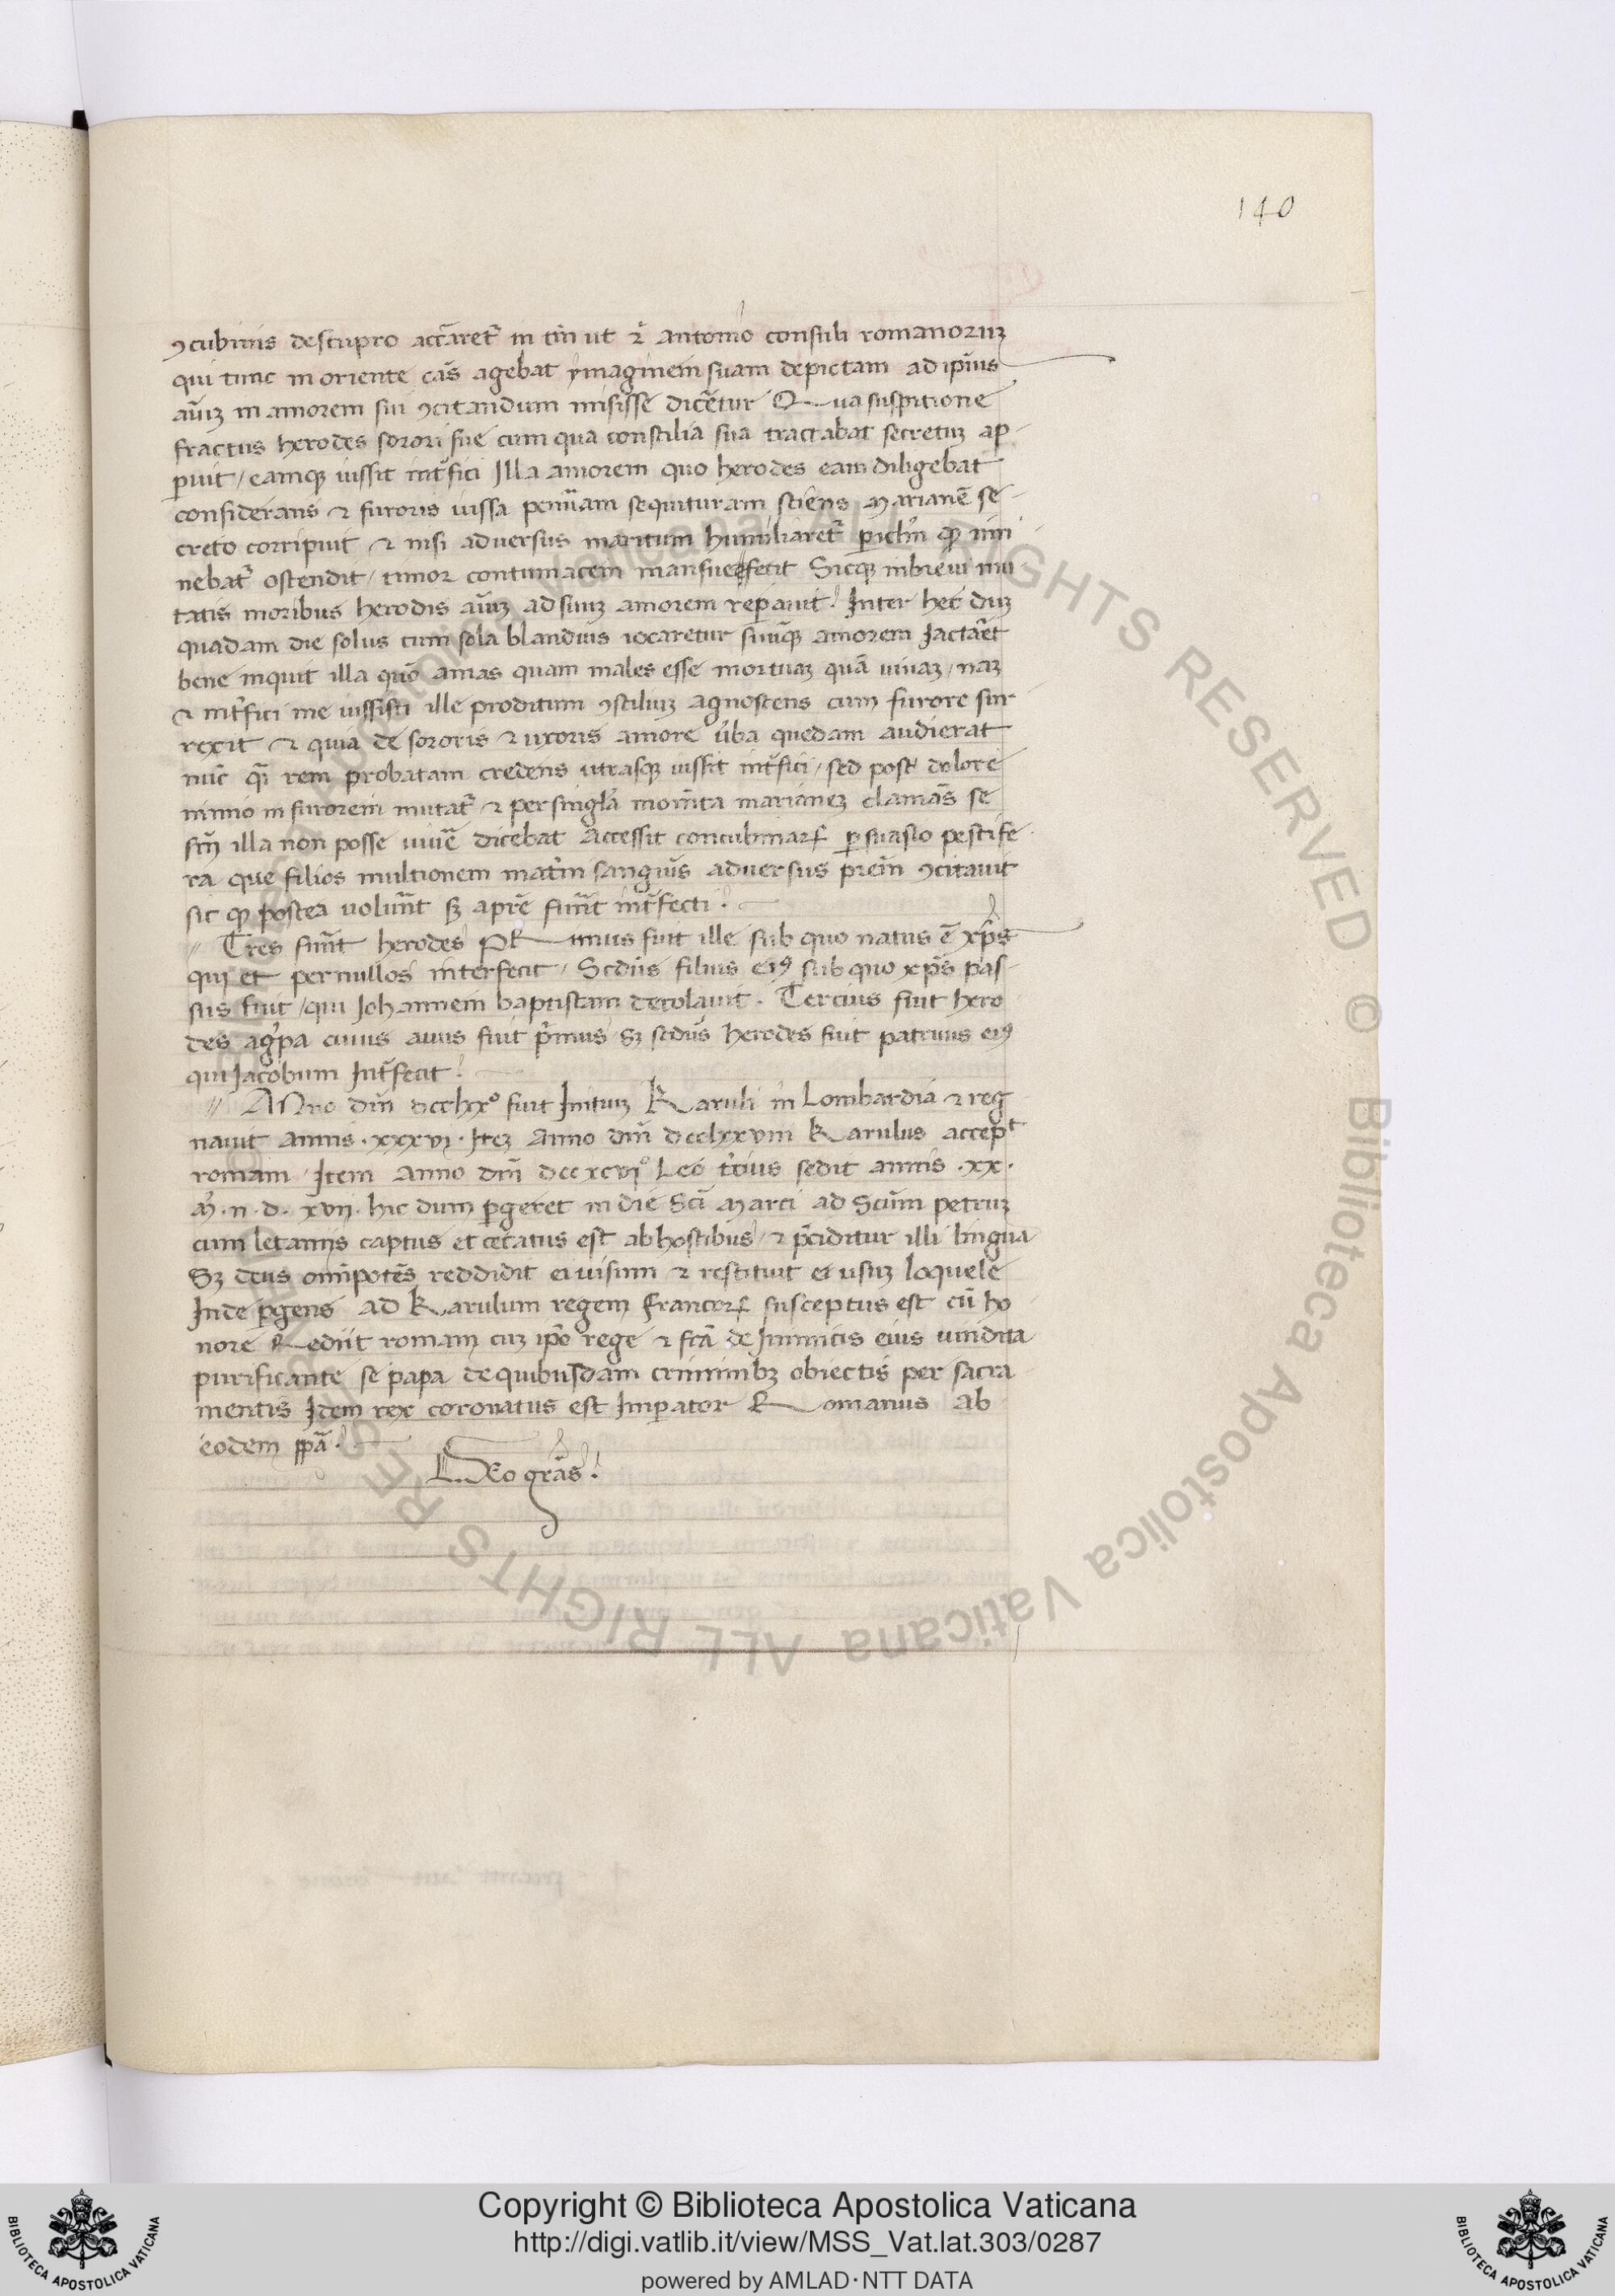 140
ꝯcubinis de stupro accāret᷑ in tm̄ ut ⁊ Antonio consuli romanoruꝫ
qui tunc in oriente cās agebat ymaginem suam depictam ad ipīus
aīuꝫ in amorem sui ꝯcitandum misisse dicētur Qua suspitione
fractus herodes sorori sue cum qua consilia sua tractabat secretuꝫ ap
ꝑuit / eamqꝫ iussit int᷑fici Illa amorem quo herodes eam diligebat
considerans ⁊ furoris iussa penītiam sequituram sciēns Marianē se
creto corripuit ⁊ nisi adversus maritum humiliaret᷑ ꝑiclm̄ qꝫ imi
nebat᷑ ostendit / timor contumacem mansuefecit Sicqꝫ in brevi mu
tatis moribus herodis aīuꝫ ad suuꝫ amorem reꝑauit. Inter hec duꝫ
quadam die solus cum sola blandiiis iocaretur suūqꝫ amorem Jactāret
bene inquit illa quō amas quam males esse mortuaꝫ quā vivaꝫ / naꝫ
⁊ int᷑fici me iussisti ille proditum ꝯsiliuꝫ agnoscens cum furore sur
rexit ⁊ quia de sororis ⁊ uxoris amore v̄ba quedam audierat
nūc q̄i rem probatam credens utrasqꝫ iussit int᷑fici / sed post dolore
nimio in furorem mutat᷑ ⁊ per singl̄a momēta marianeꝫ clamās se
sn̄ illa non posse vivē dicebat Accessit concubinaꝝ ꝑsuasio pestife
ra que filios in ultionem mat᷑ni sanguīs adversus prēm ꝯcitavit
sic qꝫ postea voluer̄nt sꝫ a prē fuer̄nt int᷑fecti.
Tres fuer̄nt herodes PRimus fuit ille sub quo natus ē xp̄s
qui et pernullos interfecit / Scdūs filius eiꝰ sub quo xp̄s pas
sus fuit / qui Johannem baptistam decolavit. Tercius fuit hero
des ag᷑pa cuius avus fuit p᷑mus sꝫ scdūs herodes fuit patruus eiꝰ
qui Jacobum Int᷑fecit.
ANno dn̄i dcclxº fuit Inituꝫ Karuli in Lombardia ⁊ reg
navit annis .xxxvi. Iteꝫ Anno dn̄i dcclxxviii Karulus accepᵗ
romam Item Anno dn̄i dccxcviº Leo t᷑cius sedit annis .xx.
m̄. n. d. xvii. hic dum ꝑgeret in die Scī Marci ad Scūm petruꝫ
cum letaniis captus et cecatus est ab hostibus / ⁊ p̄ciditur illi lingua
Sꝫ deus omīpotēs reddidit ei visum ⁊ restituit ei usuꝫ loquele
Inde ꝑgens Ad Karulum regem francoꝝ susceptus est cū ho
nore Rediit romam cuꝫ ip̄o rege ⁊ fcā de Inimicis eius vindicta
purificante se papa de quibusdam criminibꝫ obiectis per sacra
mentis Idem rex coronatus est Imꝑator Romanus Ab
eodem pp̄a.
DEo grās.
Copyright © Biblioteca Apostolica Vaticana
http://digi.vatlib.it/view/MSS_Vat.lat.303/0287
powered by AMLAD·NTT DATA
BIBLIOTECA APOSTOLICA VATICANA
BIBLIOTECA APOSTOLICA VATICANA
© Biblioteca Apostolica Vaticana ALL RIGHTS RESERVED